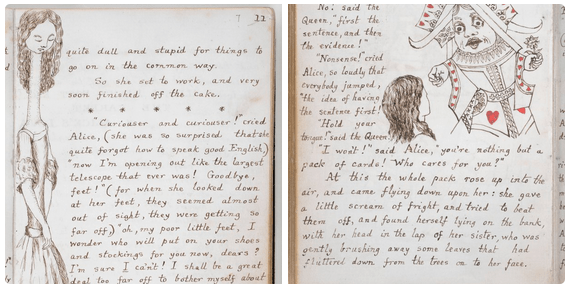 7 22
quite dull and stupid for things to
go on in the common way.
So she set to work, and very
soon finished off the cake.
* * * * * *
"Curiouser and curiouser!" cried
Alice, (she was so surprised that she
quite forgot how to speak good English,)
"now I'm opening out like the largest
telescope that ever was! Goodbye,
feet!" (for when she looked down
at her feet, they seemed almost
out of sight, they were getting so
far off,) "oh, my poor little feet, I
wonder who will put on your shoes
and stockings for you now, dears?
I'm sure I can't! I shall be a great
deal too far off to bother myself about
No! said the
Queen, "first the
sentence, and then
the evidence!"
"Nonsense!" cried
Alice, so loudly that
everybody jumped,
"the idea of having
the sentence first!
"Hold your
tongue!" said the Queen.
"I won't!" said Alice, "you're nothing but a
pack of cards! Who cares for you?"
At this the whole pack rose up into the
air, and came flying down upon her: she gave
a little scream of fright, and tried to beat
them off, and found herself lying on the bank,
with her head in the lap of her sister, who was
gently brushing away some leaves that had
fluttered down from the trees on to her face.